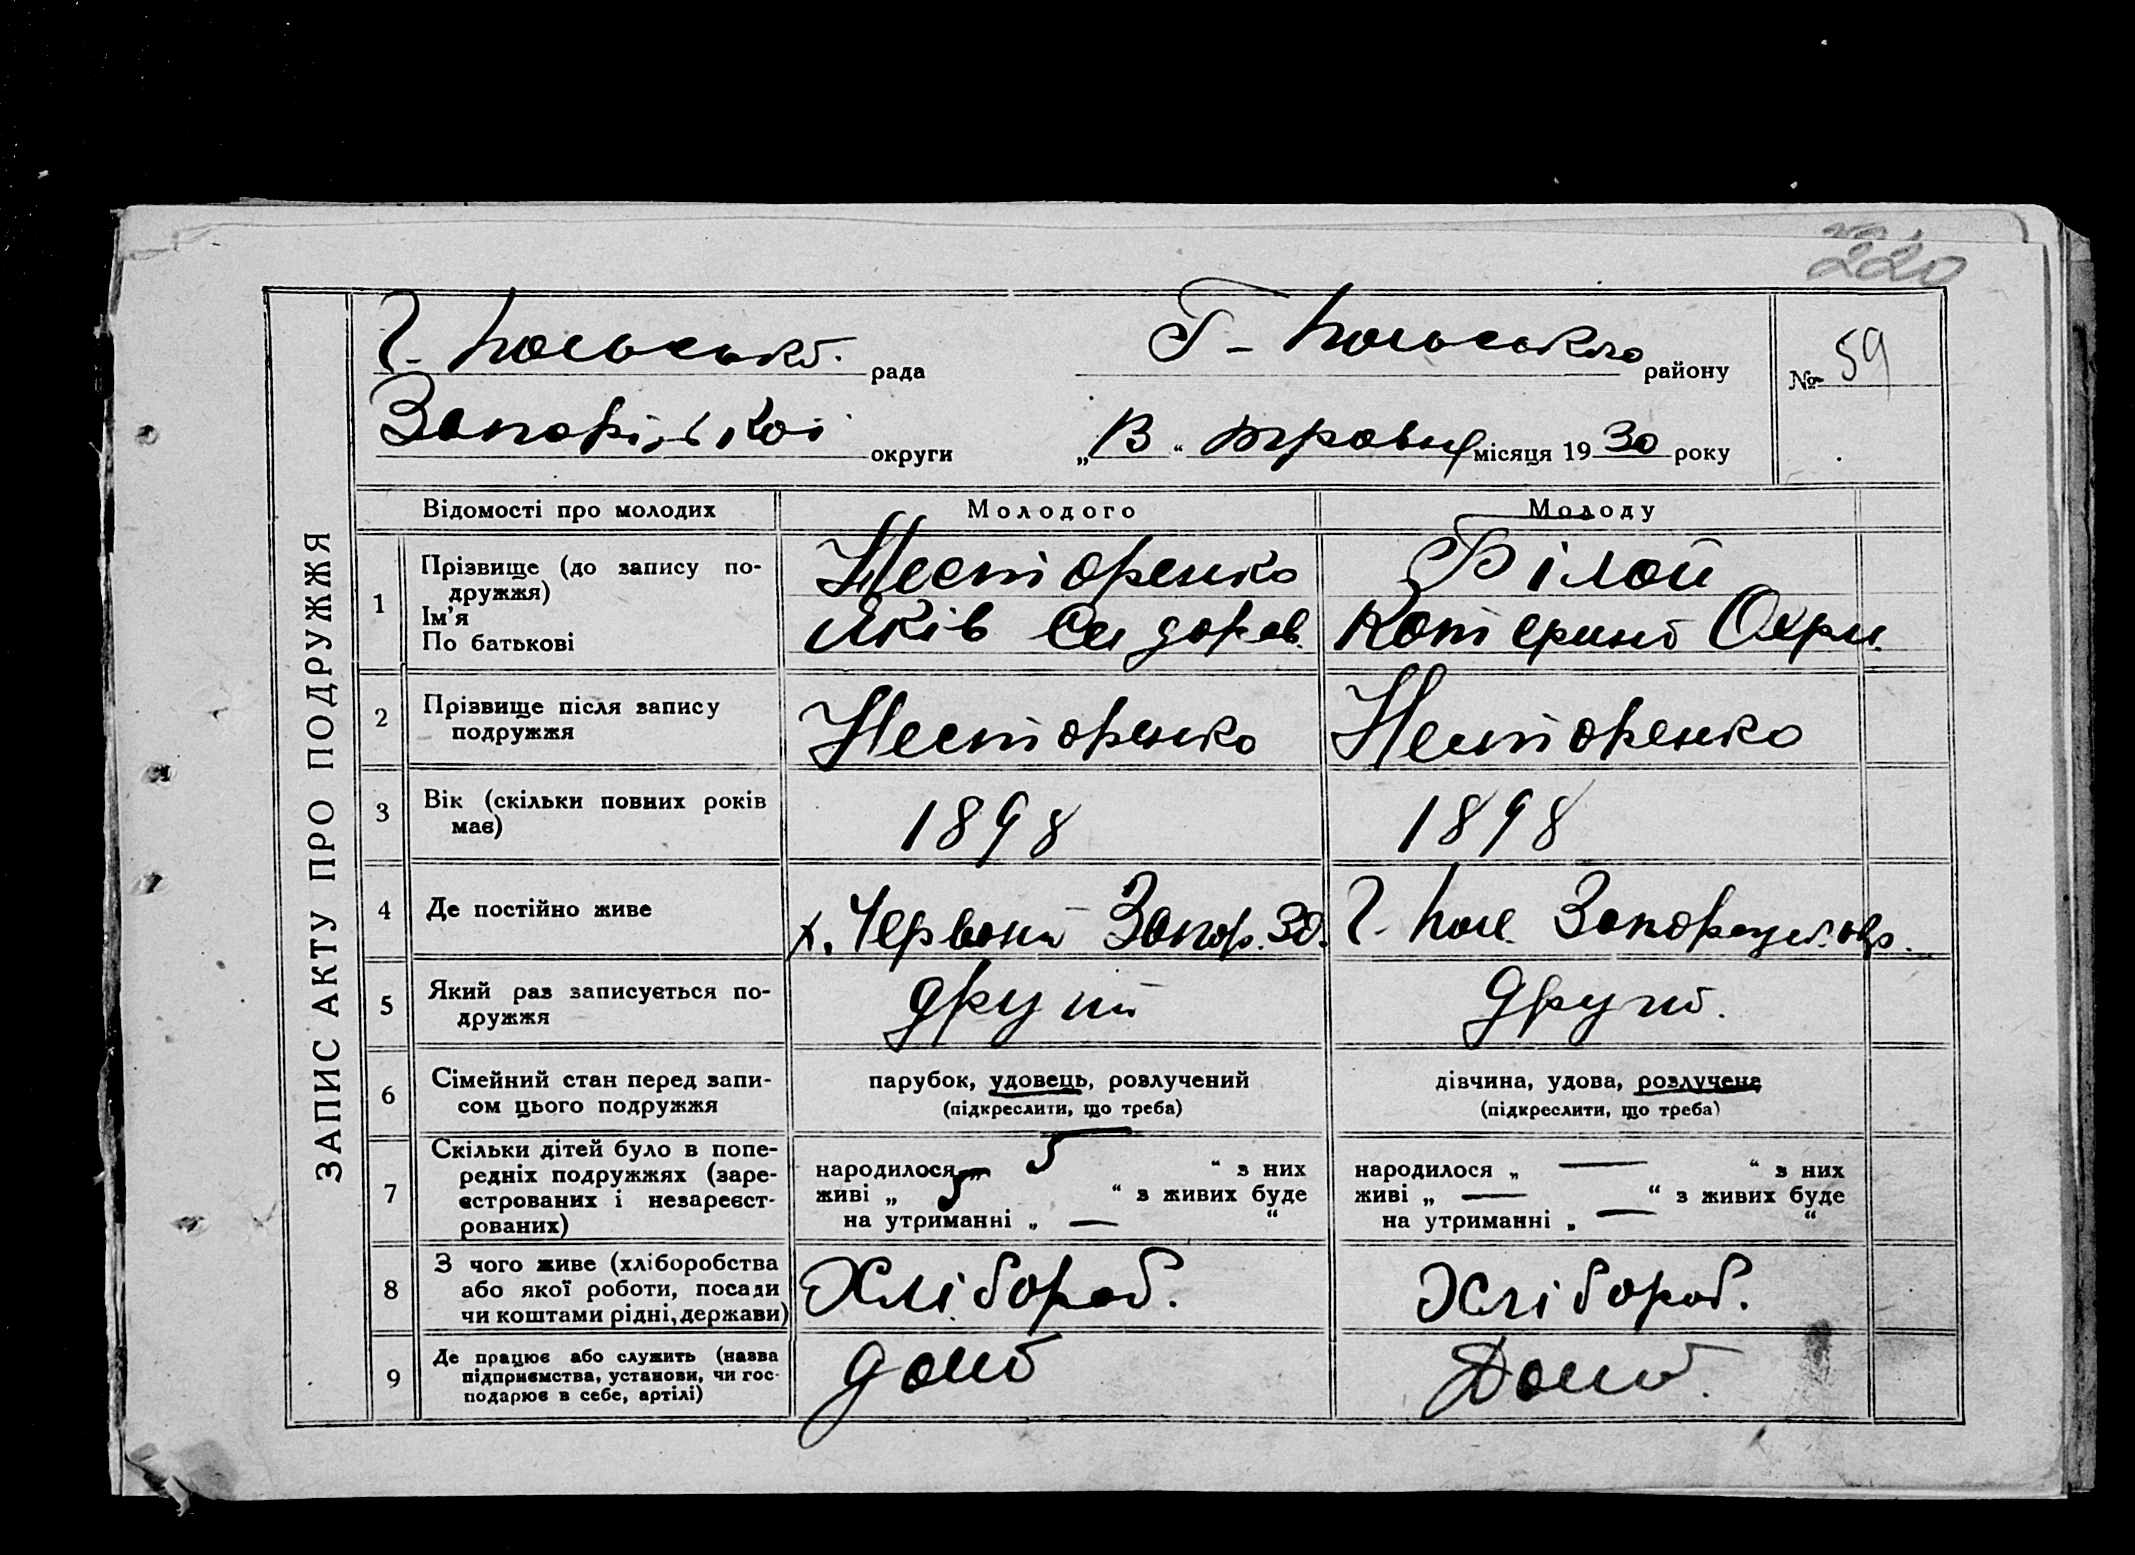 220
Г-Польська рада Г-Польського району № 59
Запорізької округи „13“ травня місяця 1930 року
ЗАПИС АКТУ ПРО ПОДРУЖЖЯ
Відомості про молодих Молодого Молоду
1 Прізвище (до запису по-
дружжя)
Ім'я
По батькові
Несторенко Білой
Яків Сидоров. Катерина Охри.
2 Прізвище після запису
подружжя
Несторенко Несторенко
3 Вік (скільки повних років
має)
1898 1898
4 Де постійно живе
х. Червоний Запор. Г-Поле
5 Який раз записується по-
дружжя
другий друга.
6 Сімейний стан перед запи-
сом цього подружжя
парубок, удовець, розлучений
(підкреслити, що треба)
дівчина, удова, розлучена
(підкреслити, що треба)
7 Скільки дітей було в попе-
редніх подружжях (заре-
єстрованих і незареєст-
рованих)
народилося „ 5 “ з них
живі „ 5 “ з живих буде
на утриманні „ — “
народилося „ — “ з них
живі „ — “ з живих буде
на утриманні „ — “
8 З чого живе (хліборобства
або якої роботи, посади
чи коштами рідні, держави)
Хлібороб. Хлібороб.
9 Де працює або служить (назва
підприємства, установи, чи гос-
подарює в себе, артілі)
дома Дома.